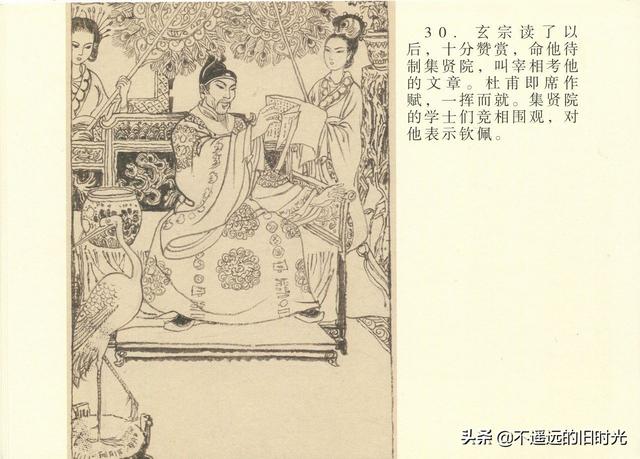 30. 玄宗读了以
后，十分赞赏，命他待
制集贤院，叫宰相考他
的文章。杜甫即席作
赋，一挥而就。集贤院
的学士们竞相围观，对
他表示钦佩。
头条 @不遥远的旧时光